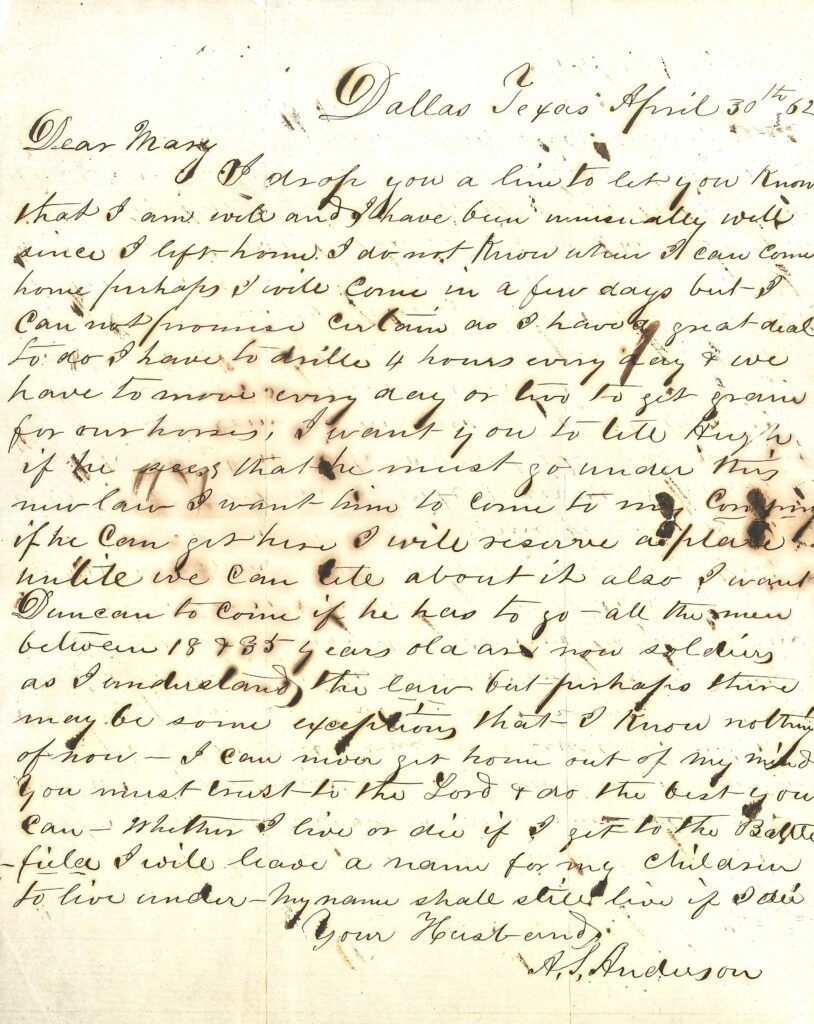 Dallas Texas April 30th 62
Dear Mary
I drop you a line to let you Know
that I am well and I have been unusually well
since I left home. I do not Know when I can come
home perhaps I will come in a few days but I
can not promise certain as I have a great deal
to do I have to drille 4 hours every day & we
have to move every day or two to get grain
for our horses, I want you to tell Hugh
if he sees that he must go under this
new law I want him to come to my Company
if he can get here I will reserve a place
untill we can about it also I want
Duncan to come if he has to go - all the men
between 18 & 35 years old are now soldiers
as I understand the law but perhaps there
may be some exceptions that I Know nothing
of now - I can never get home out of my mind
you must trust to the Lord & do the best you
can - Whether I live or die if I get to the Battle
-field I will leave a name for my children
to live under - My name shall still live if I die
Your Husband,
A. S. Anderson